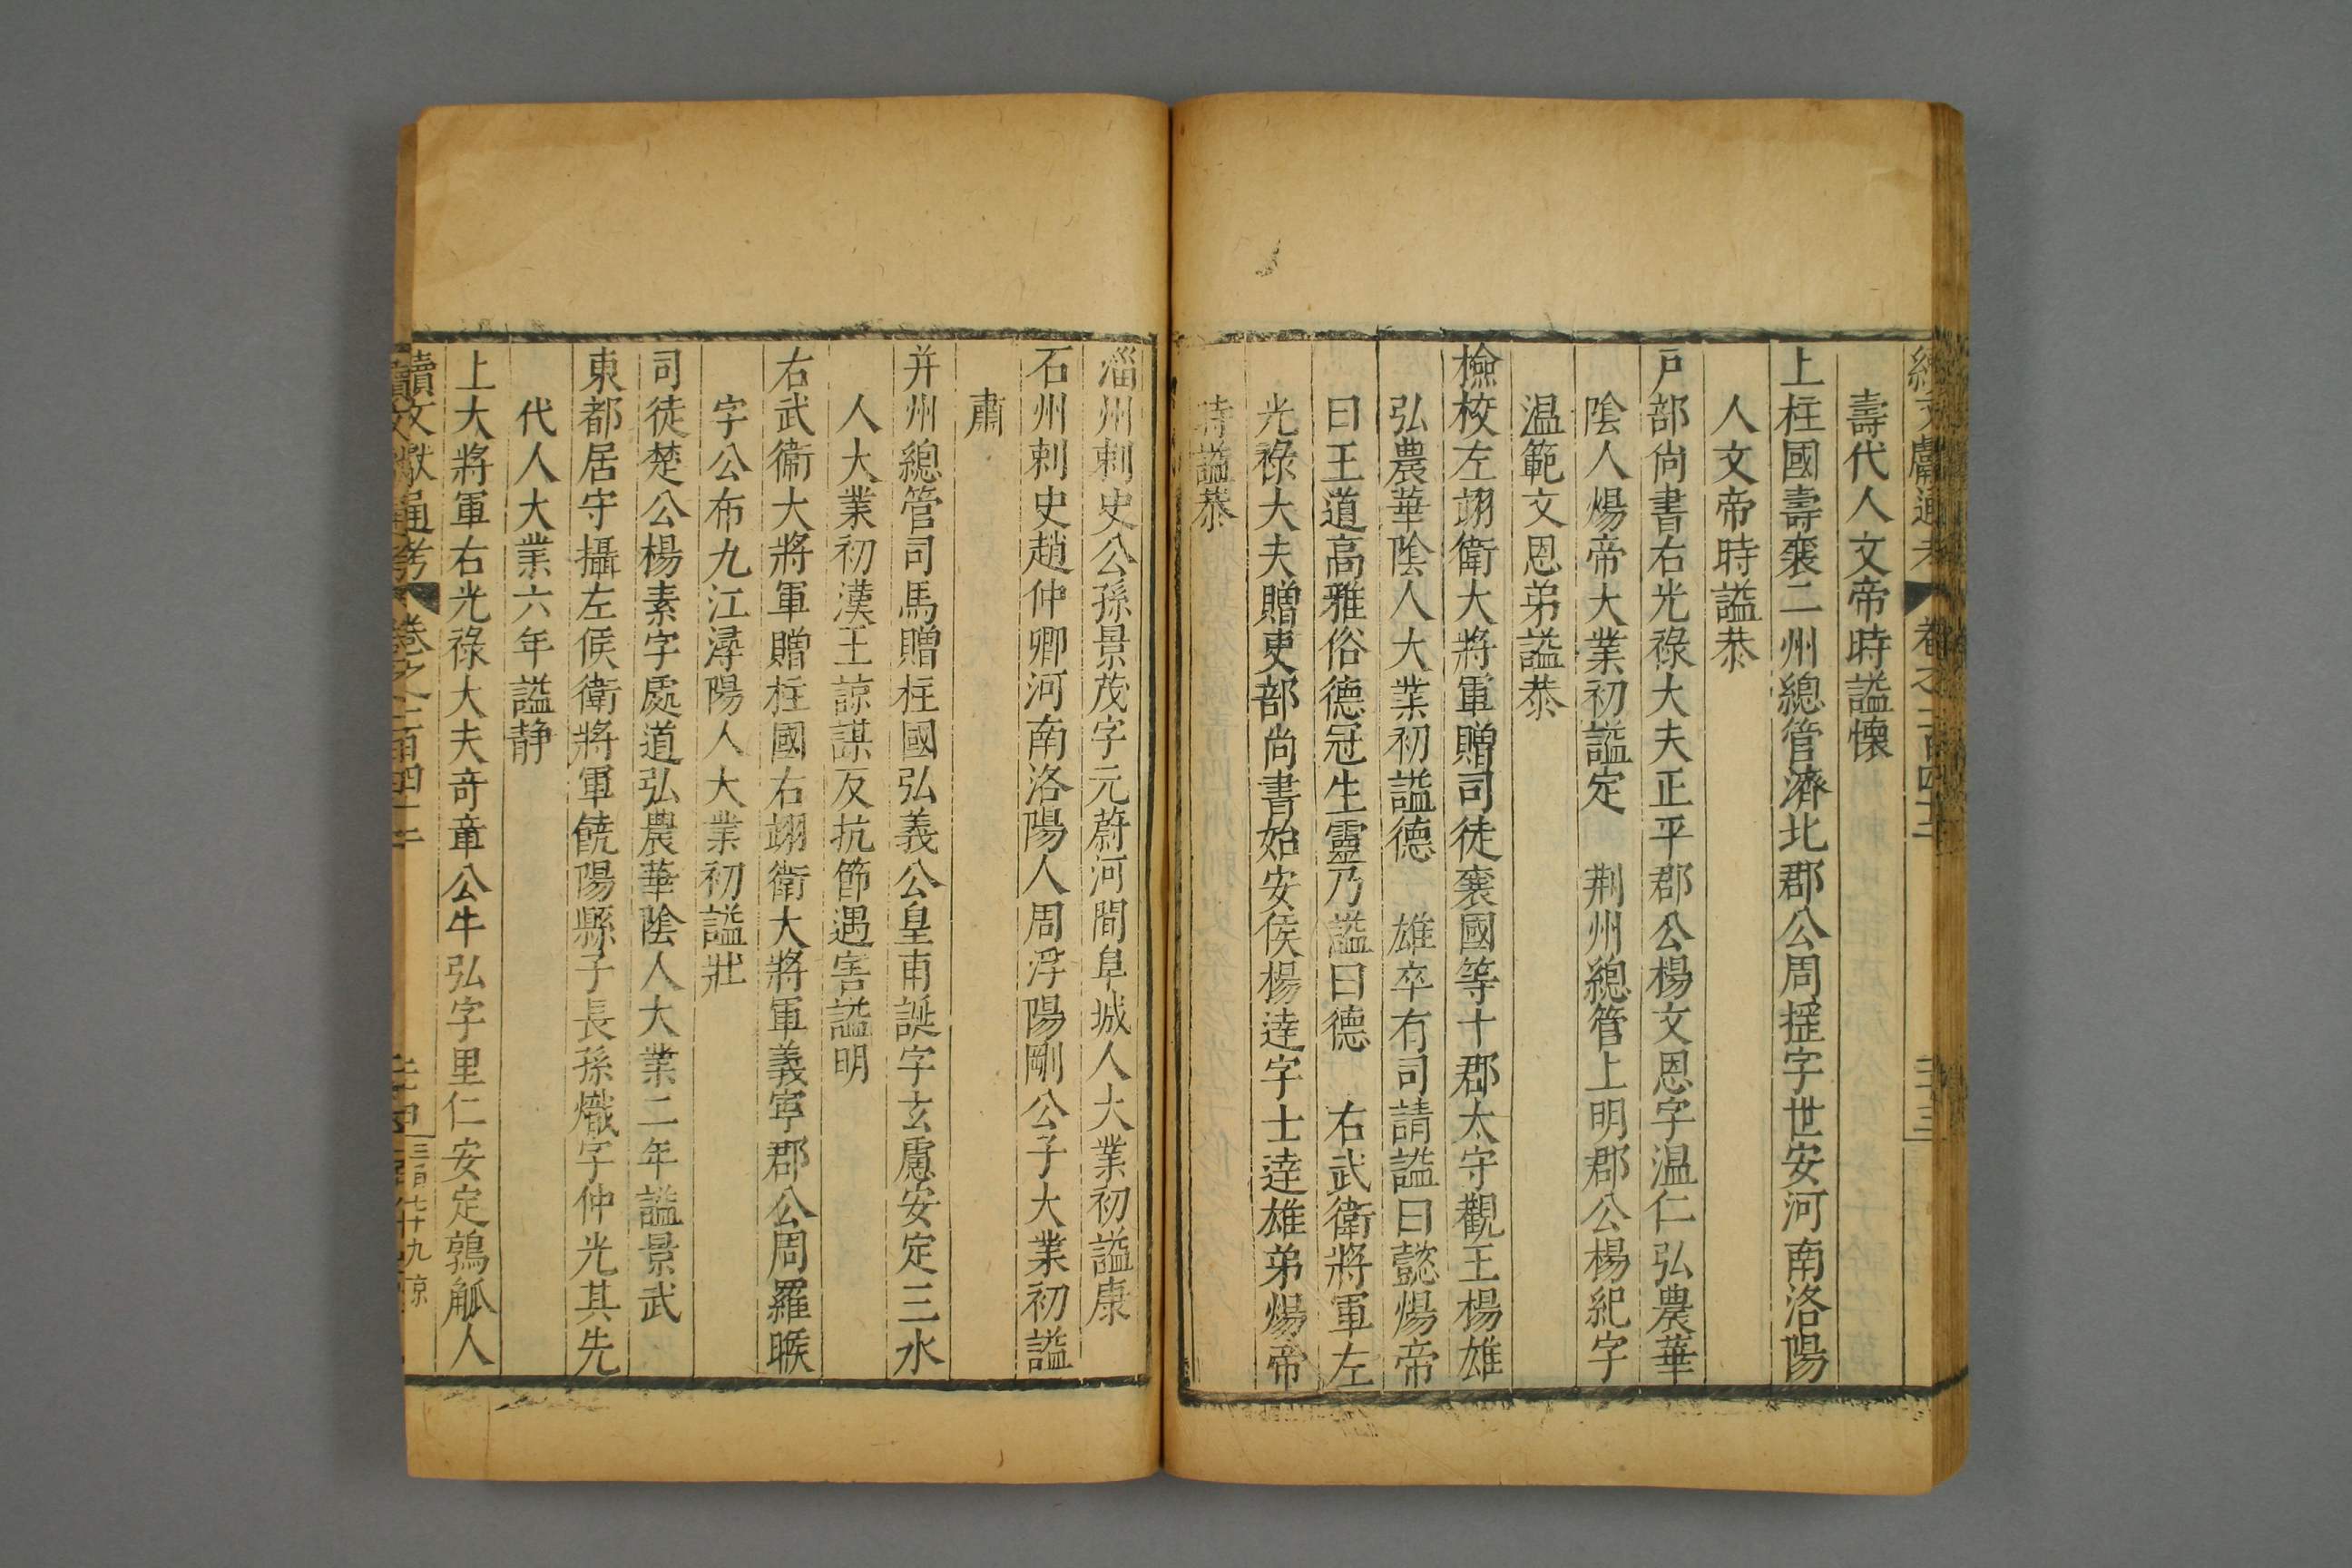 續文獻通考 卷之一百四十二 二十三
壽代人文帝時謚懷
上柱國壽襄二州總管濟北郡公周揺字世安河南洛陽
人文帝時謚恭
戸部尚書右光祿大夫正平郡公楊文恩字温仁弘農華
陰人煬帝大業初謚定 荆州總管上明郡公楊紀字
温範文恩弟謚恭
檢校左翊衛大將軍贈司徒襄國等十郡太守觀王楊雄
弘農華陰人大業初謚德 雄卒有司請謚曰懿煬帝
曰王道高雅俗德冠生靈乃謚曰德 右武衛將軍左
光祿大夫贈吏部尚書始安侯楊逹字士逹雄弟煬帝
時謚恭
淄州刺史公孫景茂字元蔚河間阜城人大業初謚康
石州刺史趙仲卿河南洛陽人周浮陽剛公子大業初謚
肅
并州總管司馬贈柱國弘義公皇甫誕字玄慮安定三水
人大業初漢王諒謀反抗節遇害謚明
右武衞大將軍贈柱國右翊衛大將軍義寜郡公周羅睺
字公布九江潯陽人大業初謚壯
司徒楚公楊素字處道弘農華陰人大業二年謚景武
東都居守攝左候衛將軍饒陽縣子長孫熾字仲光其先
代人大業六年謚静
上大將軍右光祿大夫竒章公牛弘字里仁安定鶉觚人
續文獻通考 卷之一百四十二 二十四 三百七十九 京